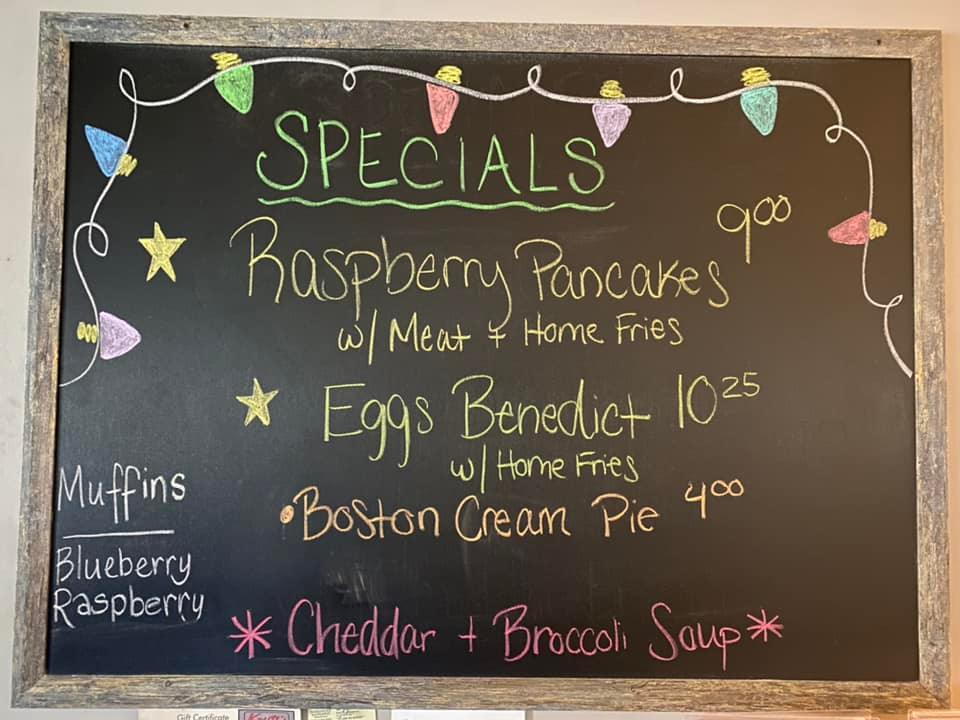 SPECIALS
Raspberry Pancakes 9.00
w/ Meat + Home Fries
Eggs Benedict 10 25
w/ Home Fries
• Boston Cream Pie 4 00
Muffins
Blueberry
Raspberry
* Cheddar + Broccoli Soup *
Gift Certificate